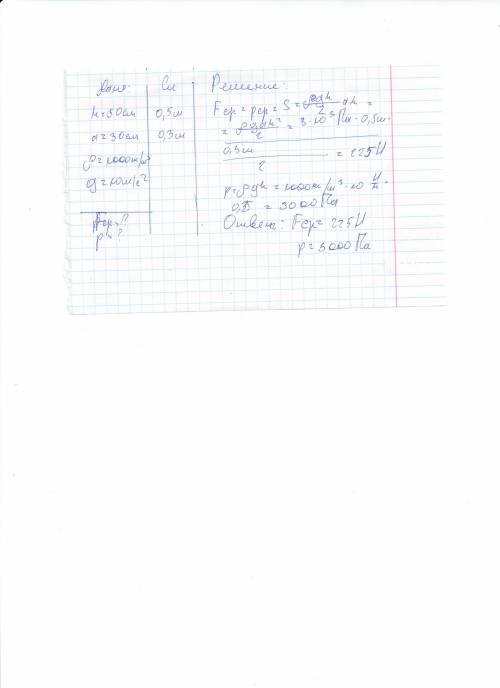 Дано:
h = 50см
a = 30см
ρ = 1000кг/м³
g = 10м/с²
Fср - ?
p - ?
Си
0,5м
0,3м
Решение:
Fср = pср = S = ρgh/2 ah =
= ρgah²/2 = 3·10³Па·0,5м·
0,3м/2 = 225Н
p = ρgh = 1000кг/м³·10 Н/кг·
0,5 = 5000Па
Ответ: Fср = 225Н
p = 5000Па